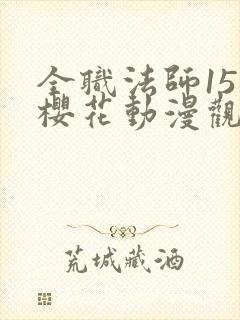 全職法師15
櫻花動漫觀
荒城藏酒